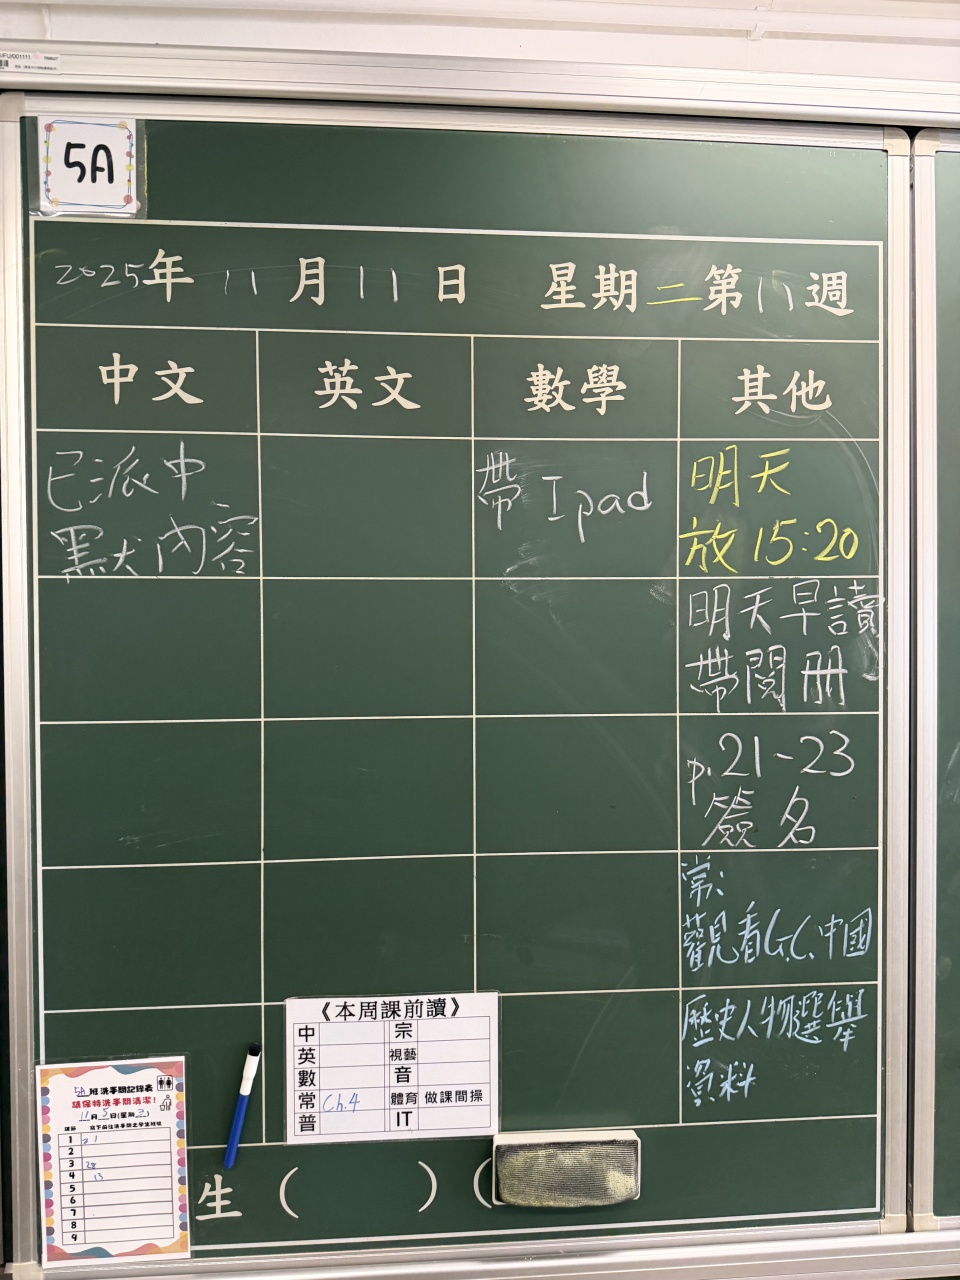 5A
2025年 11月11日 星期二 第11週
中文 英文 數學 其他
已派中
默內容
帶 Ipad
明天
放15:20
明天早讀
帶閱册
p.21-23
簽名
常:
觀看G.C.中國
歷史人物選舉
資料
《本周課前讀》
中 宗
英 視藝
數 音
常 Ch.4 體育 做課間操
普 IT
5A班洗手間記錄表
請保持洗手間清潔!
11月5日(星期三)
1 21
2
3 28
4 13
5
6
7
8
9
生 ( ) (